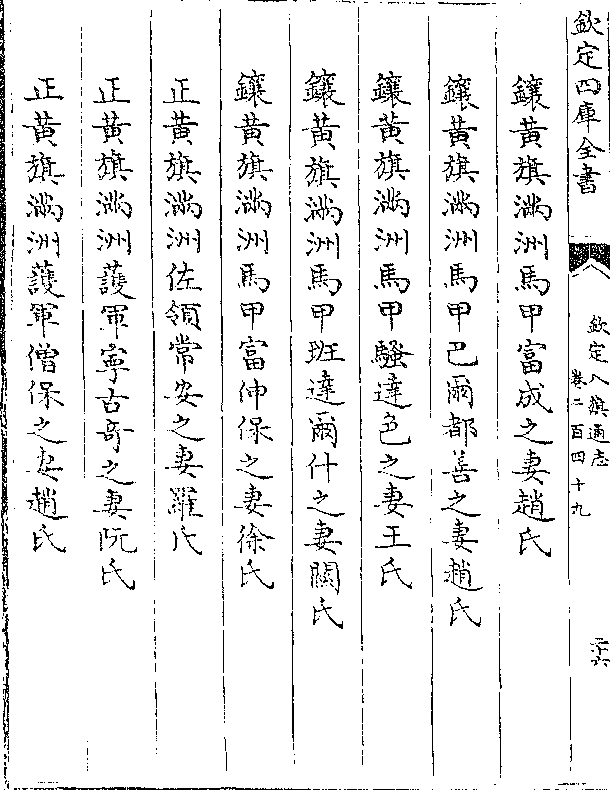 欽定四庫全書
欽定八旗通志
卷二百四十九
二十六
鑲黃旗滿洲馬甲富成之妻趙氏
鑲黃旗滿洲馬甲巴爾都善之妻趙氏
鑲黃旗滿洲馬甲騷達色之妻王氏
鑲黃旗滿洲馬甲班達爾什之妻關氏
鑲黃旗滿洲馬甲富伸保之妻徐氏
正黃旗滿洲佐領常安之妻羅氏
正黃旗滿洲護軍寧古奇之妻阮氏
正黃旗滿洲護軍僧保之妻趙氏